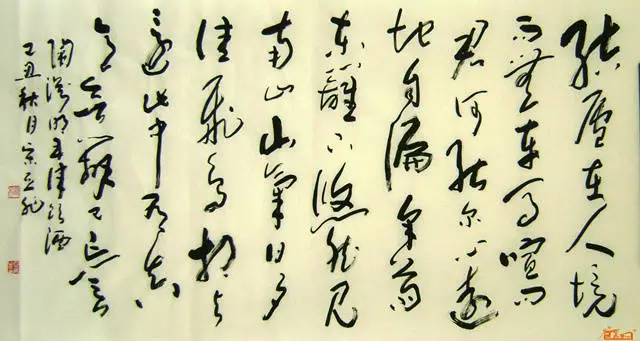 結廬在人境
而無車馬喧問
君何能爾心遠
地自偏采菊
東籬下悠然見
南山山氣日夕
佳飛鳥相與
還此中有真
意欲辨已忘言
陶淵明五律飲酒
己丑秋月